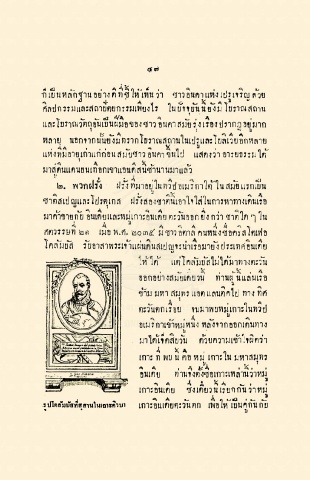 ๔๙
ก็เป็นหลักฐานอย่างดีที่ชี้ให้เห็นว่า ชาวอินคาแห่งเปรูเจริญด้วย
ศิลปกรรมและสถาปัตยกรรมเพียงไร ในปัจจุบันนี้ยังมีโบราณสถาน
และโบราณวัตถุอันเป็นฝีมือของชาวอินคาสมัยรุ่งเรืองปรากฏอยู่มาก
หลาย นอกจากนั้นยังมีซากโบราณสถานในเปรูและโบลิเวียอีกหลาย
แห่งที่มีอายุเก่าแก่ก่อนสมัยชาวอินคาขึ้นไป แสดงว่า อารยธรรมได้
มาสู่ดินแดนแถบเทือกเขาแอนดีสนี้ช้านานมาแล้ว
๒. พวกฝรั่ง ฝรั่งที่มาอยู่ในทวีปอเมริกาใต้ในสมัยแรกเป็น
ชาติสเปญและโปรตุเกส ฝรั่งสองชาตินี้เอาใจใส่ในการหาทางเดินเรือ
มาค้าขายกับอินเดียและหมู่เกาะอินเดียตะวันออกยิ่งกว่าชาติใด ๆ ใน
ศตวรรษที่ ๒๑ เมื่อ พ.ศ. ๒๐๓๕ มีชาวอิตาลีคนหนึ่งชื่อคริสโตเฟอ
โคลัมบัส รับอาสาพระเจ้าแผ่นดินสเปญจะนำเรือมายังประเทศอินเดีย
ให้ได้ แต่โคลัมบัสไม่ได้มาทางตะวัน
ออกอย่างสมัยเดี๋ยวนี้ ท่านผู้นี้แล่นเรือ
ข้ามมหาสมุทรแอตแลนติคไปทางทิศ
ตะวันตกเรื่อย จนมาพบหมู่เกาะในทวีป
อเมริกาเข้าหมู่หนึ่ง หลังจากออกเดินทาง
มาได้เจ็ดสิบวัน ด้วยความเข้าใจผิดว่า
เกาะที่พบนี้คือหมู่เกาะในมหาสมุทร
อินเดีย ท่านจึงตั้งชื่อเกาะเหล่านี้ว่าหมู่
เกาะอินเดีย ซึ่งเดี๋ยวนี้เรียกกันว่าหมู่
เกาะอินเดียตะวันตก เพื่อให้เป็นคู่กันกับ
รูปโคลัมบัสที่สุสานในเกาะคิวบา